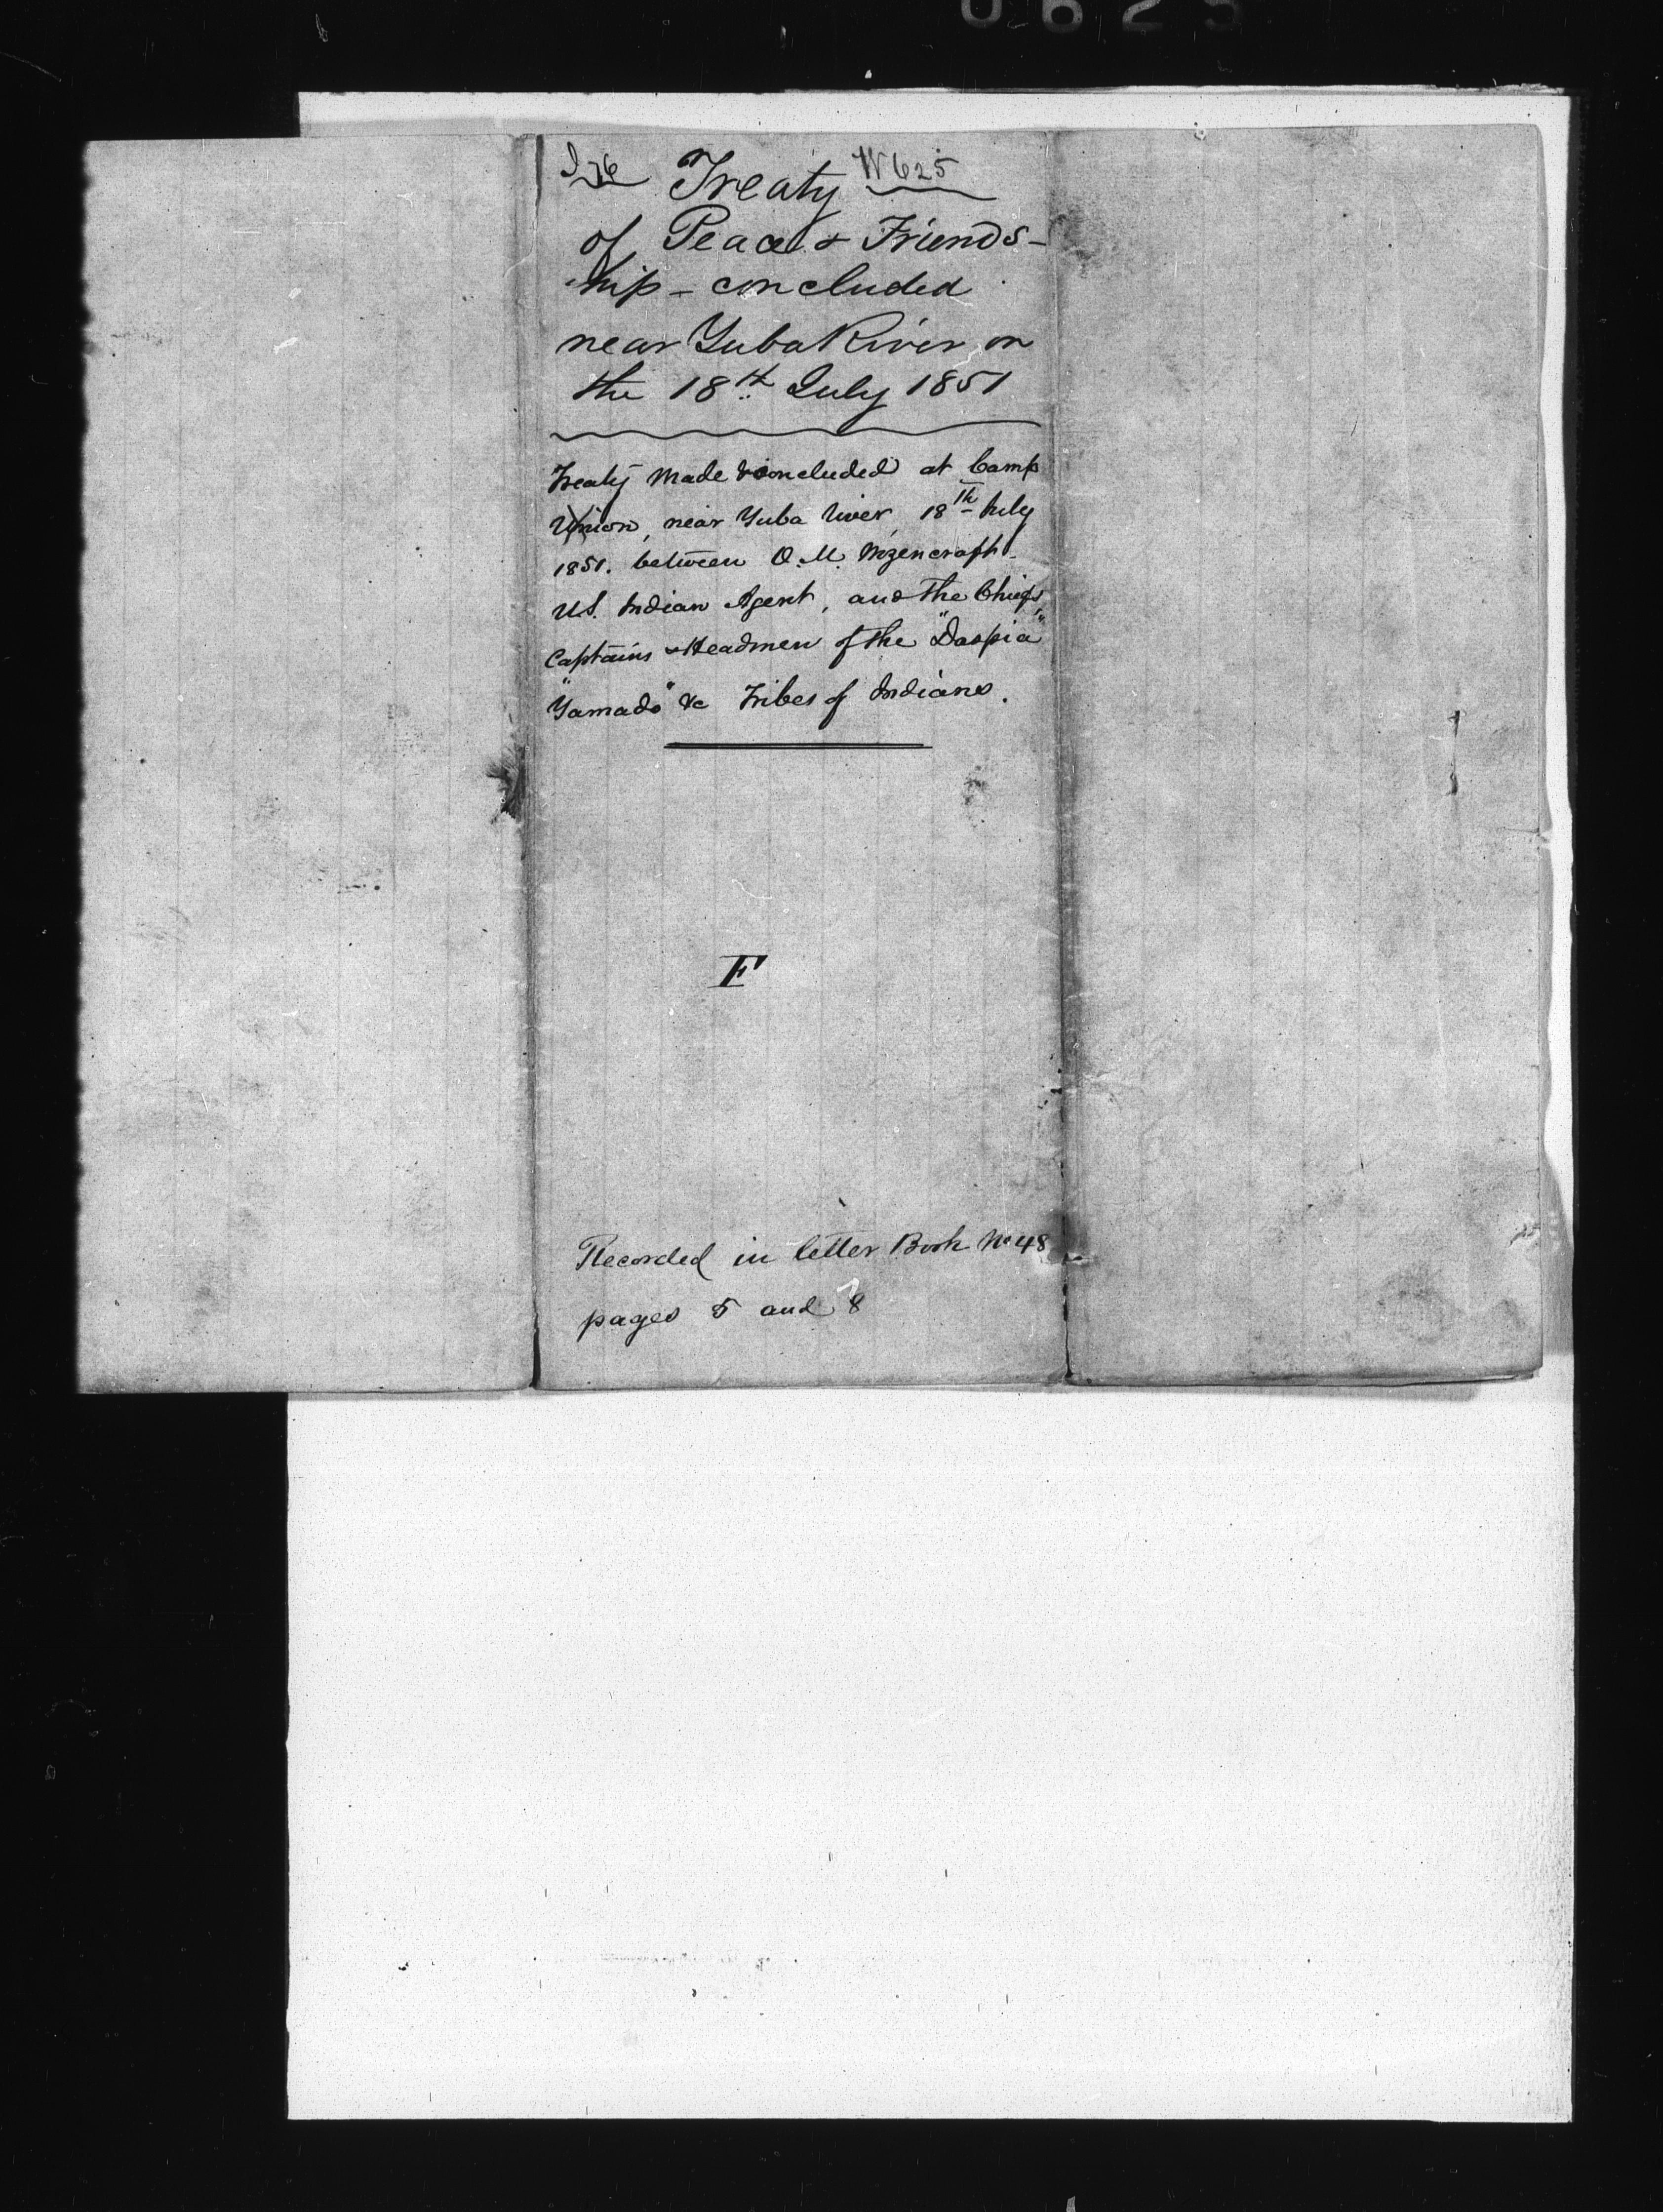 0625
I 76 Treaty W625
of Peace & Friends-
ship - concluded
near Yuba River on
the 18th July 1851
Treaty made & concluded at Camp
Union, near Yuba River, 18th July
1851. between O. M. Wozencraft
U.S. Indian Agent, and the Chiefs,
Captains & Headmen of the "Daspia"
"Yamado" &c Tribes of Indians.
F
Recorded in letter Book No 48
pages 5 and 8